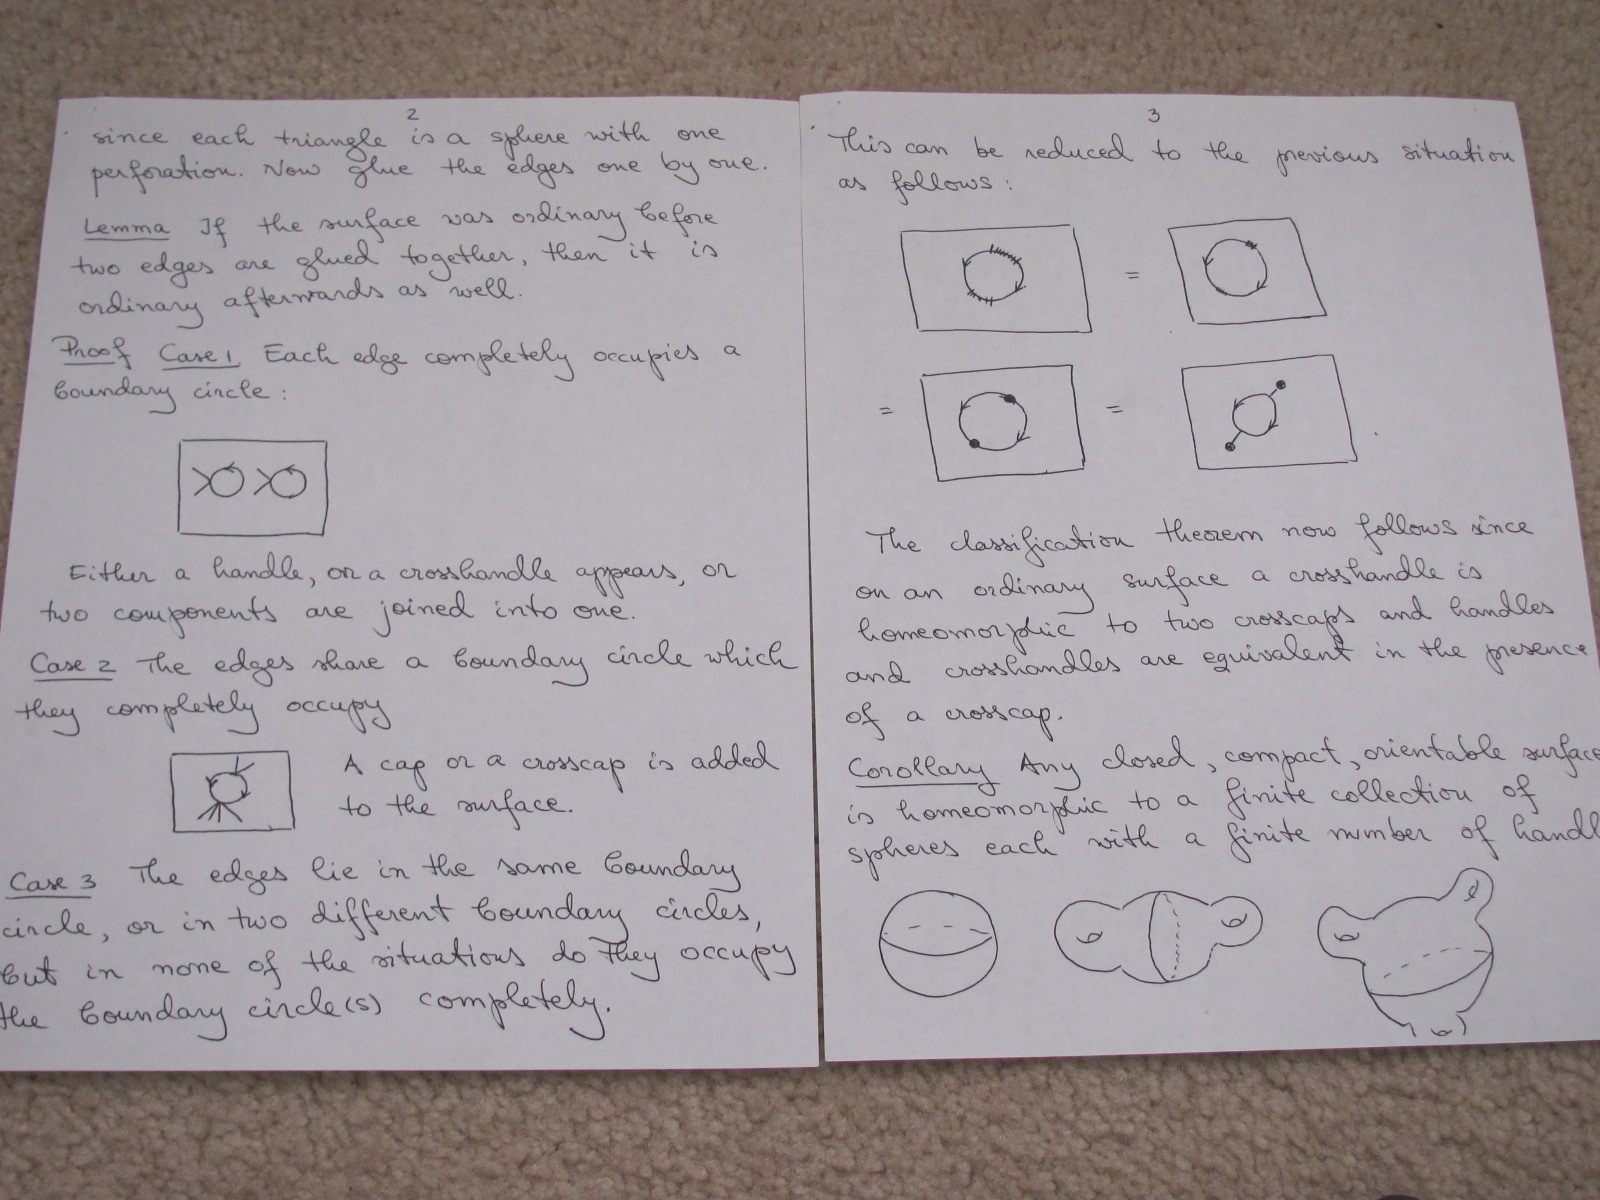 2
since each triangle is a sphere with one
perforation. Now glue the edges one by one.
Lemma If the surface was ordinary before
two edges are glued together, then it is
ordinary afterwards as well.
Proof Case 1. Each edge completely occupies a
boundary circle:
Either a handle, or a crosshandle appears, or
two components are joined into one.
Case 2 The edges share a boundary circle which
they completely occupy
A cap or a crosscap is added
to the surface.
Case 3 The edges lie in the same boundary
circle, or in two different boundary circles,
but in none of the situations do they occupy
the boundary circle(s) completely.
3
This can be reduced to the previous situation
as follows:
=
= =
The classification theorem now follows since
on an ordinary surface a crosshandle is
homeomorphic to two crosscaps and handles
and crosshandles are equivalent in the presence
of a crosscap.
Corollary Any closed, compact, orientable surface
is homeomorphic to a finite collection of
spheres each with a finite number of handl